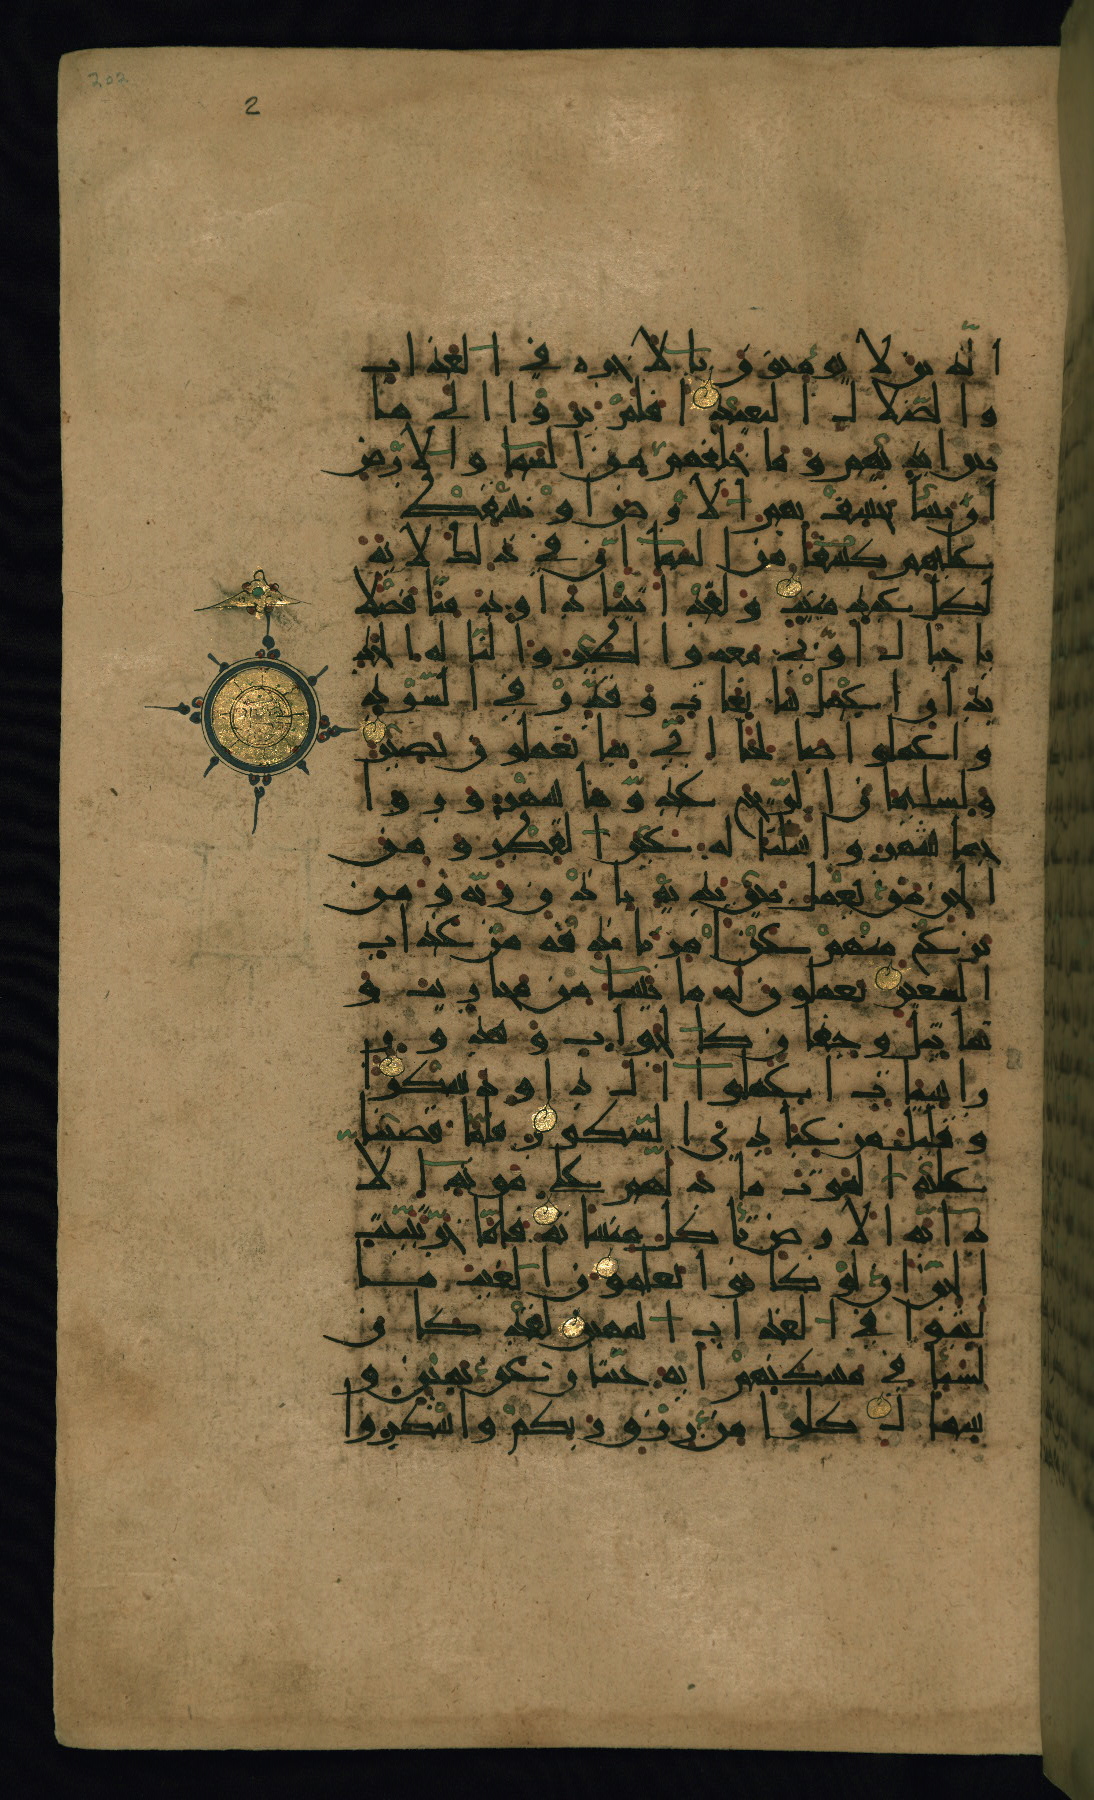 202
2
الذين لا يؤمنون بالاخرة في العذاب
والضلال البعيد افلم يروا الى ما
بين ايديهم وما خلفهم من السما والارض
ان نشا نخسف بهم الارض او نسقط
عليهم كسفا من السما ان في ذلك لاية
لكل عبد منيب ولقد اتينا داود منا فضلا
يا جبال اوبي معه والطير والنا له الحد
يد ان اعمل سابغات وقدر في السرد
واعملوا صالحا اني بما تعملون بصير
ولسليمان الريح غدوها شهر وروا
حها شهر واسلنا له عين القطر ومن
الجن من يعمل بين يديه باذن ربه ومن
يزغ منهم عن امرنا نذقه من عذاب
السعير يعملون له ما يشا من محاريب و
تماثيل وجفان كالجواب وقدور
راسيات اعملوا ال داود شكرا
وقليل من عبادي الشكور فلما قضينا
عليه الموت ما دلهم على موته الا
دابة الارض تاكل منساته فلما خر تبينت
الجن ان لو كانوا يعلمون الغيب ما
لبثوا في العذاب المهين لقد كان
لسبا في مسكنهم اية جنتان عن يمين و
شمال كلوا من رزق ربكم واشكروا